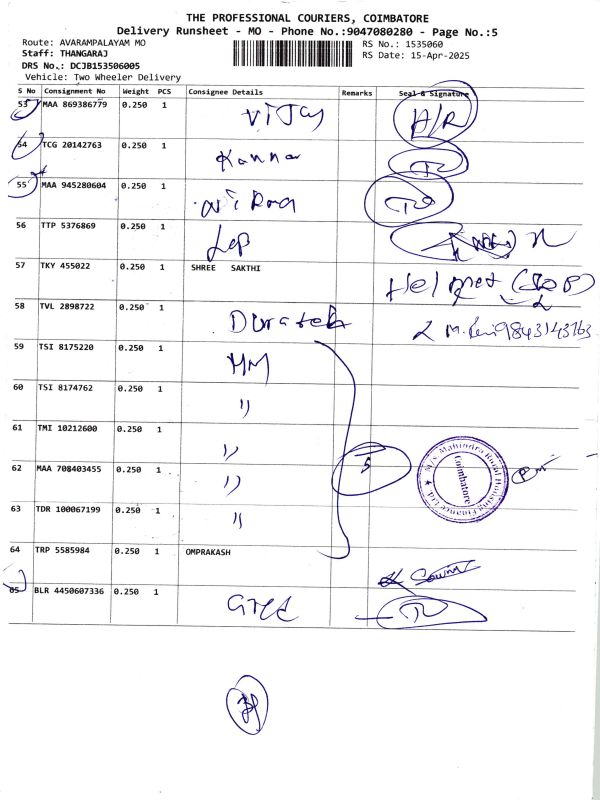 THE PROFESSIONAL COURIERS, COIMBATORE
Delivery Runsheet - MO - Phone No.:9047080280 - Page No.:5
Route: AVARAMPALAYAM MO RS No.: 1535060
Staff: THANGARAJ RS Date: 15-Apr-2025
DRS No.: DCJB153506005
Vehicle: Two Wheeler Delivery
S No Consignment No Weight PCS Consignee Details Remarks Seal & Signature
53 MAA 869386779 0.250 1 Vijay
54 TCG 20142763 0.250 1 Kannar
55 MAA 945280604 0.250 1
56 TTP 5376869 0.250 1
57 TKY 455022 0.250 1 SHREE SAKTHI Helmet
58 TVL 2898722 0.250 1 Duratek 9843143163
59 TSI 8175220 0.250 1 MM
60 TSI 8174762 0.250 1 "
61 TMI 10212600 0.250 1 "
62 MAA 708403455 0.250 1 " 5 M/s. Mahindra Rural Housing Finance Ltd. Coimbatore
63 TDR 100067199 0.250 1 "
64 TRP 5585984 0.250 1 OMPRAKASH
65 BLR 4450607336 0.250 1